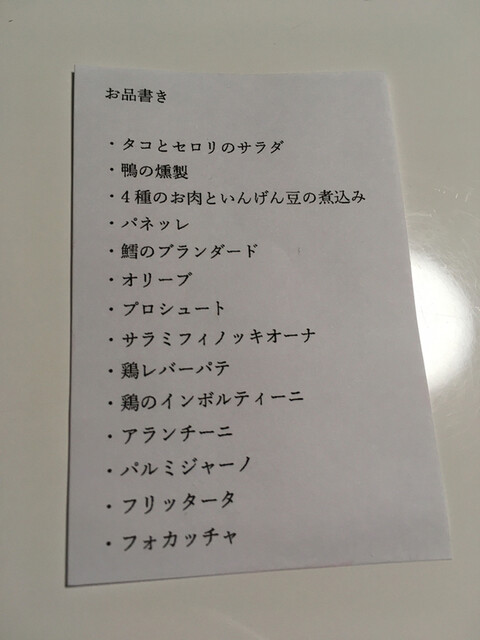 お品書き
・タコとセロリのサラダ
・鴨の燻製
・4種のお肉といんげん豆の煮込み
・パネッレ
・鱈のブランダード
・オリーブ
・プロシュート
・サラミフィノッキオーナ
・鶏レバーパテ
・鶏のインボルティーニ
・アランチーニ
・パルミジャーノ
・フリッタータ
・フォカッチャ